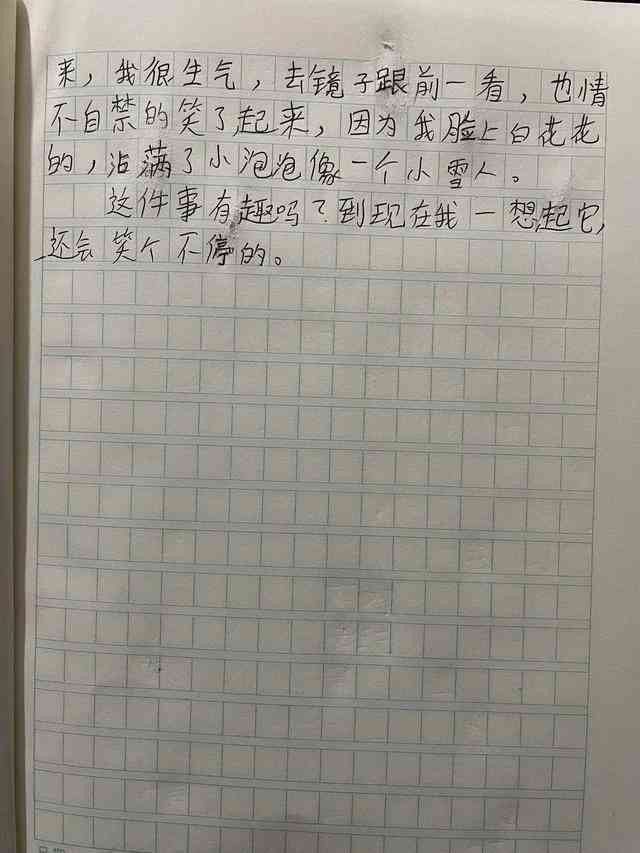 来，我很生气，去镜子跟前一看，也情
不自禁的笑了起来，因为我脸上白花花
的，沾满了小泡泡像一个小雪人。
这件事有趣吗？到现在我一想起它，
还会笑个不停的。